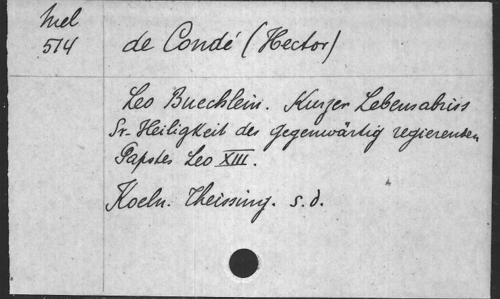 Mel
514
de Condé (Hector)
Leo Buechlein. Kurzer Lebensabriss
Sr. Heiligkeit des gegenwärtig regierenden
Papstes Leo XIII.
Koeln. Theissing. s.d.